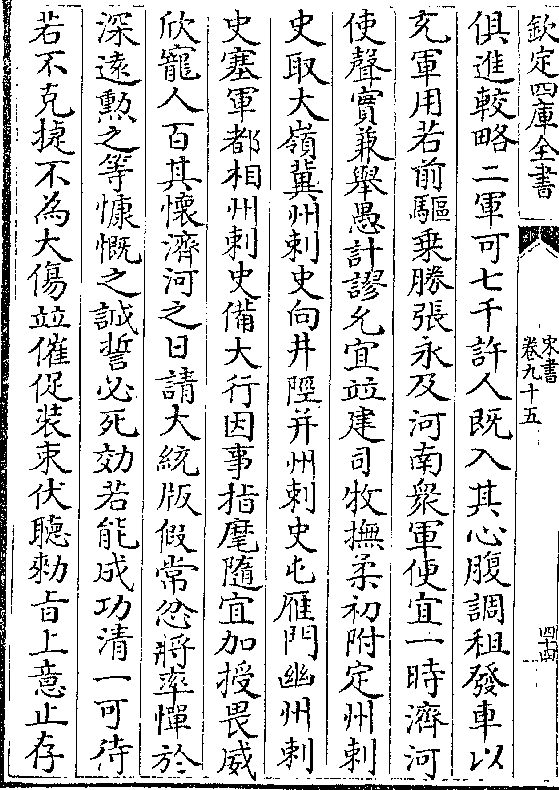 欽定四庫全書
宋書
卷九十五
四十四
俱進較略二軍可七千許人既入其心腹調租發車以
充軍用若前驅乗勝張永及河南衆軍便宜一時濟河
使聲實兼舉愚計謬允宜並建司牧撫柔初附定州刺
史取大嶺冀州刺史向井陘并州刺史屯雁門幽州刺
史塞軍都相州刺史備大行因事指麾隨宜加授畏威
欣寵人百其懷濟河之日請大統版假常忿將率憚於
深遠勲之等慷慨之誠誓必死効若能成功清一可待
若不克捷不為大傷並催促装束伏聽勅旨上意止存